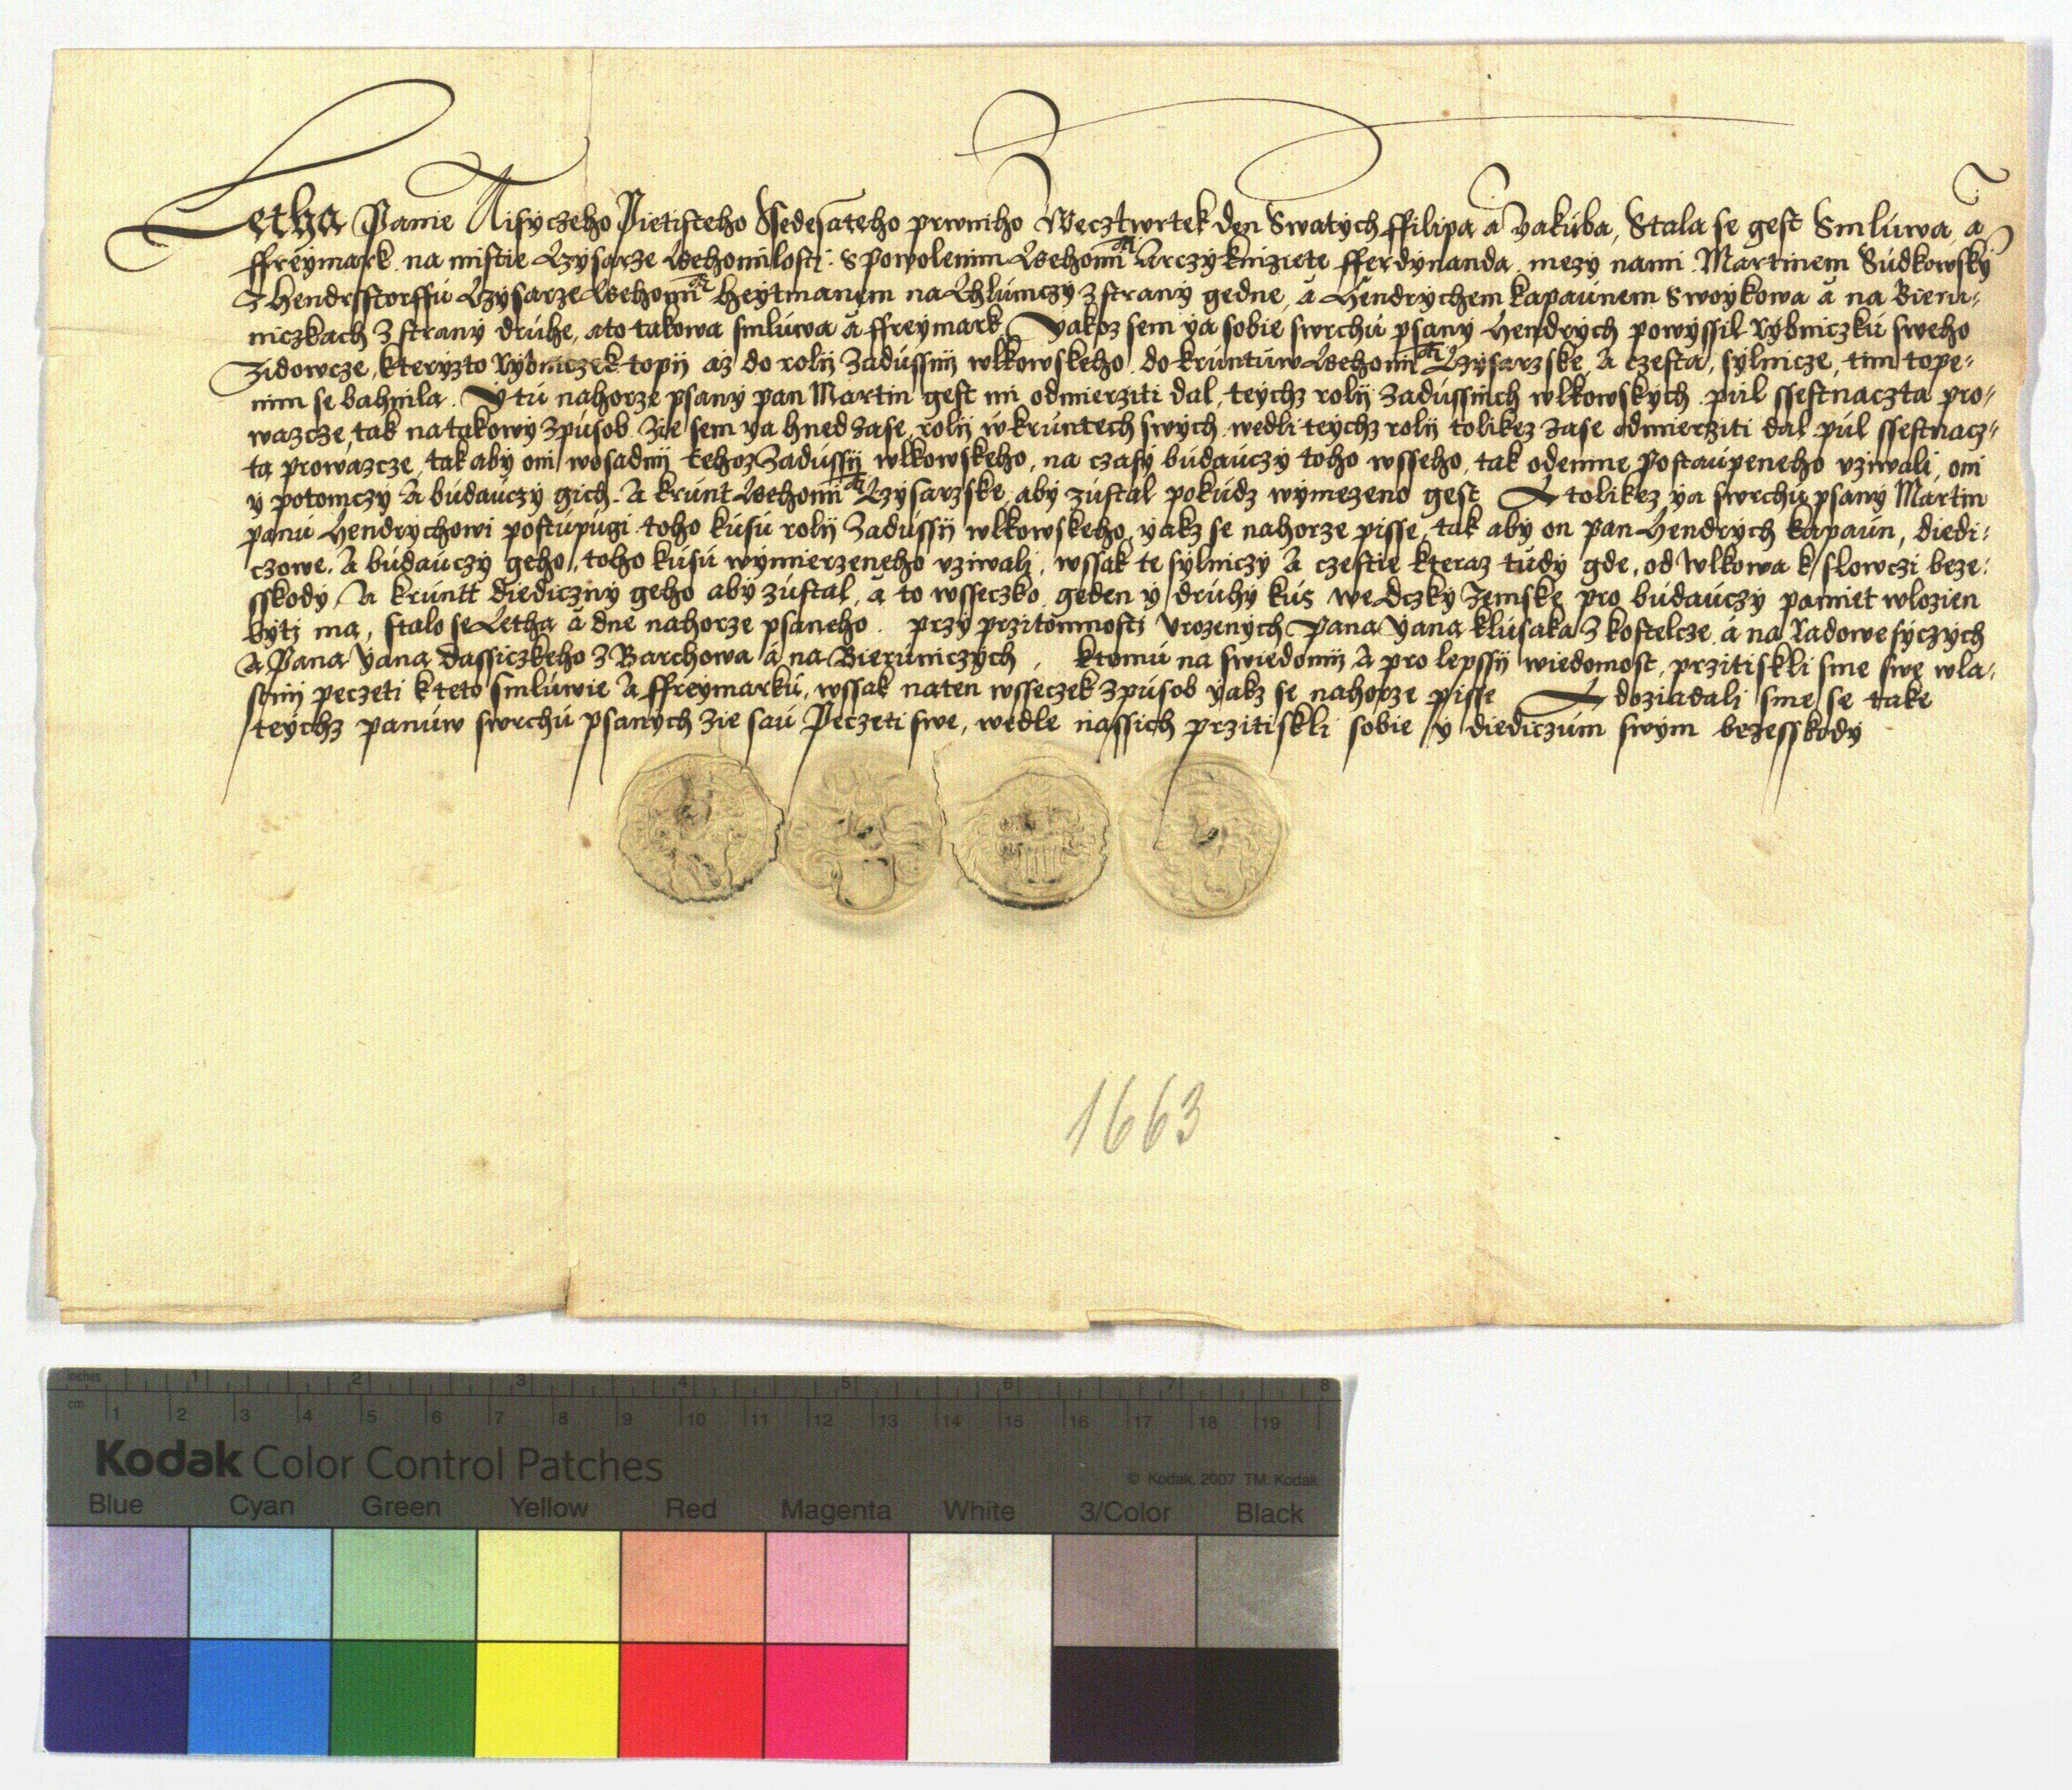 Letha Panie Tisyczeho Pietisteho Ssedesateho prwniho Wecztwrtek den Swatych ffilipa a Yakuba, Stala se gest Smluwa, a
ffreymark na mistie Czysarze Gehomilosti. S Powolenim Gehomti Arczyknizete fferdynanda, mezy nami Martinem Sudkowsky
z Hendrsstorffu Czysarze Gehomti Heytmanem na Chlumczy z strany gedne, a Hendrychem kapaunem Swoykowa a na Bieru-
niczkach z strany druhe, ato takowa smluwa a ffreymark, Yakoz sem ya sobie swrchu psany Hendrych powyssil Rybniczku sweho
Zidowcze, kteryzto Rybniczek topij az do rolij Zadussnij wlkowskeho, do kruntuw Gehomti Czysarzske, A czesta, sylnicze, tim tope-
nim se bahnila. Y tu nahorze psany pan Martin gest mi odmierziti dal, teychz rolij Zadussnich wlkowskych pul ssestnaczta pro-
wazcze, tak natakowy zpusob zie sem ya hned zase, rolij w kruntech swych wedli teychz rolij tolikez zase odmierziti dal pul ssestnacz-
ta prowazcze, tak aby oni wosadnij tehoz Zadussij wlkowskeho, na czasy budauczy toho wsseho, tak odemne postaupeneho uziwali, oni
y potomczy A budauczy gich. A krunt Gehomti Czysarzske, aby zustal pokudz wymezeno gest A tolikez ya swrchu psany Martin
panu Hendrychowi postupugi toho kusu rolij Zadussij wlkowskeho, yakz se nahorze pisse, tak aby on pan Hendrych kapaun, diedi-
czowe. A budauczy geho, toho kusu wymierzeneho uziwali, wssak te sylniczy A czestie kteraz tudy gde, od wlkowa k slowczi beze-
sskody, A kruntt diediczny geho aby zustal, a to wsseczko, geden y druhy kus we dczky Zemske pro budauczy pamiet wlozien
byti ma, stalo se Letha a dne nahorze psaneho. przy przitomnosti Urozenych Pana Yana klusaka z kostelcze a na Radowesyczych
A Pana Yana dassiczkeho z Barchowa a na Bieruniczych, ktomu na swiedomij A pro lepssij wiedomost, przitiskli sme swe wla-
stnij peczeti k teto smluwie A ffreymarku, wssak naten wsseczek zpusob yakz se nahorze pisse A doziadali sme se take
teychz panuw swrchu psanych zie sau Peczeti swe, wedle nassich przitiskli sobie y diediczum swym bezesskody
1663
inches 1 2 3 4 5 6 7 8
cm 1 2 3 4 5 6 7 8 9 10 11 12 13 14 15 16 17 18 19
Kodak Color Control Patches
© Kodak, 2007 TM: Kodak
Blue Cyan Green Yellow Red Magenta White 3/Color Black